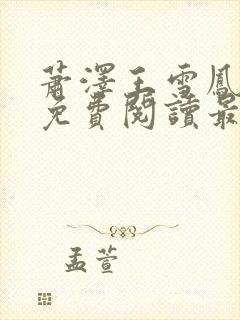 蕭澤王雪鳳
免費閱讀最
孟萱